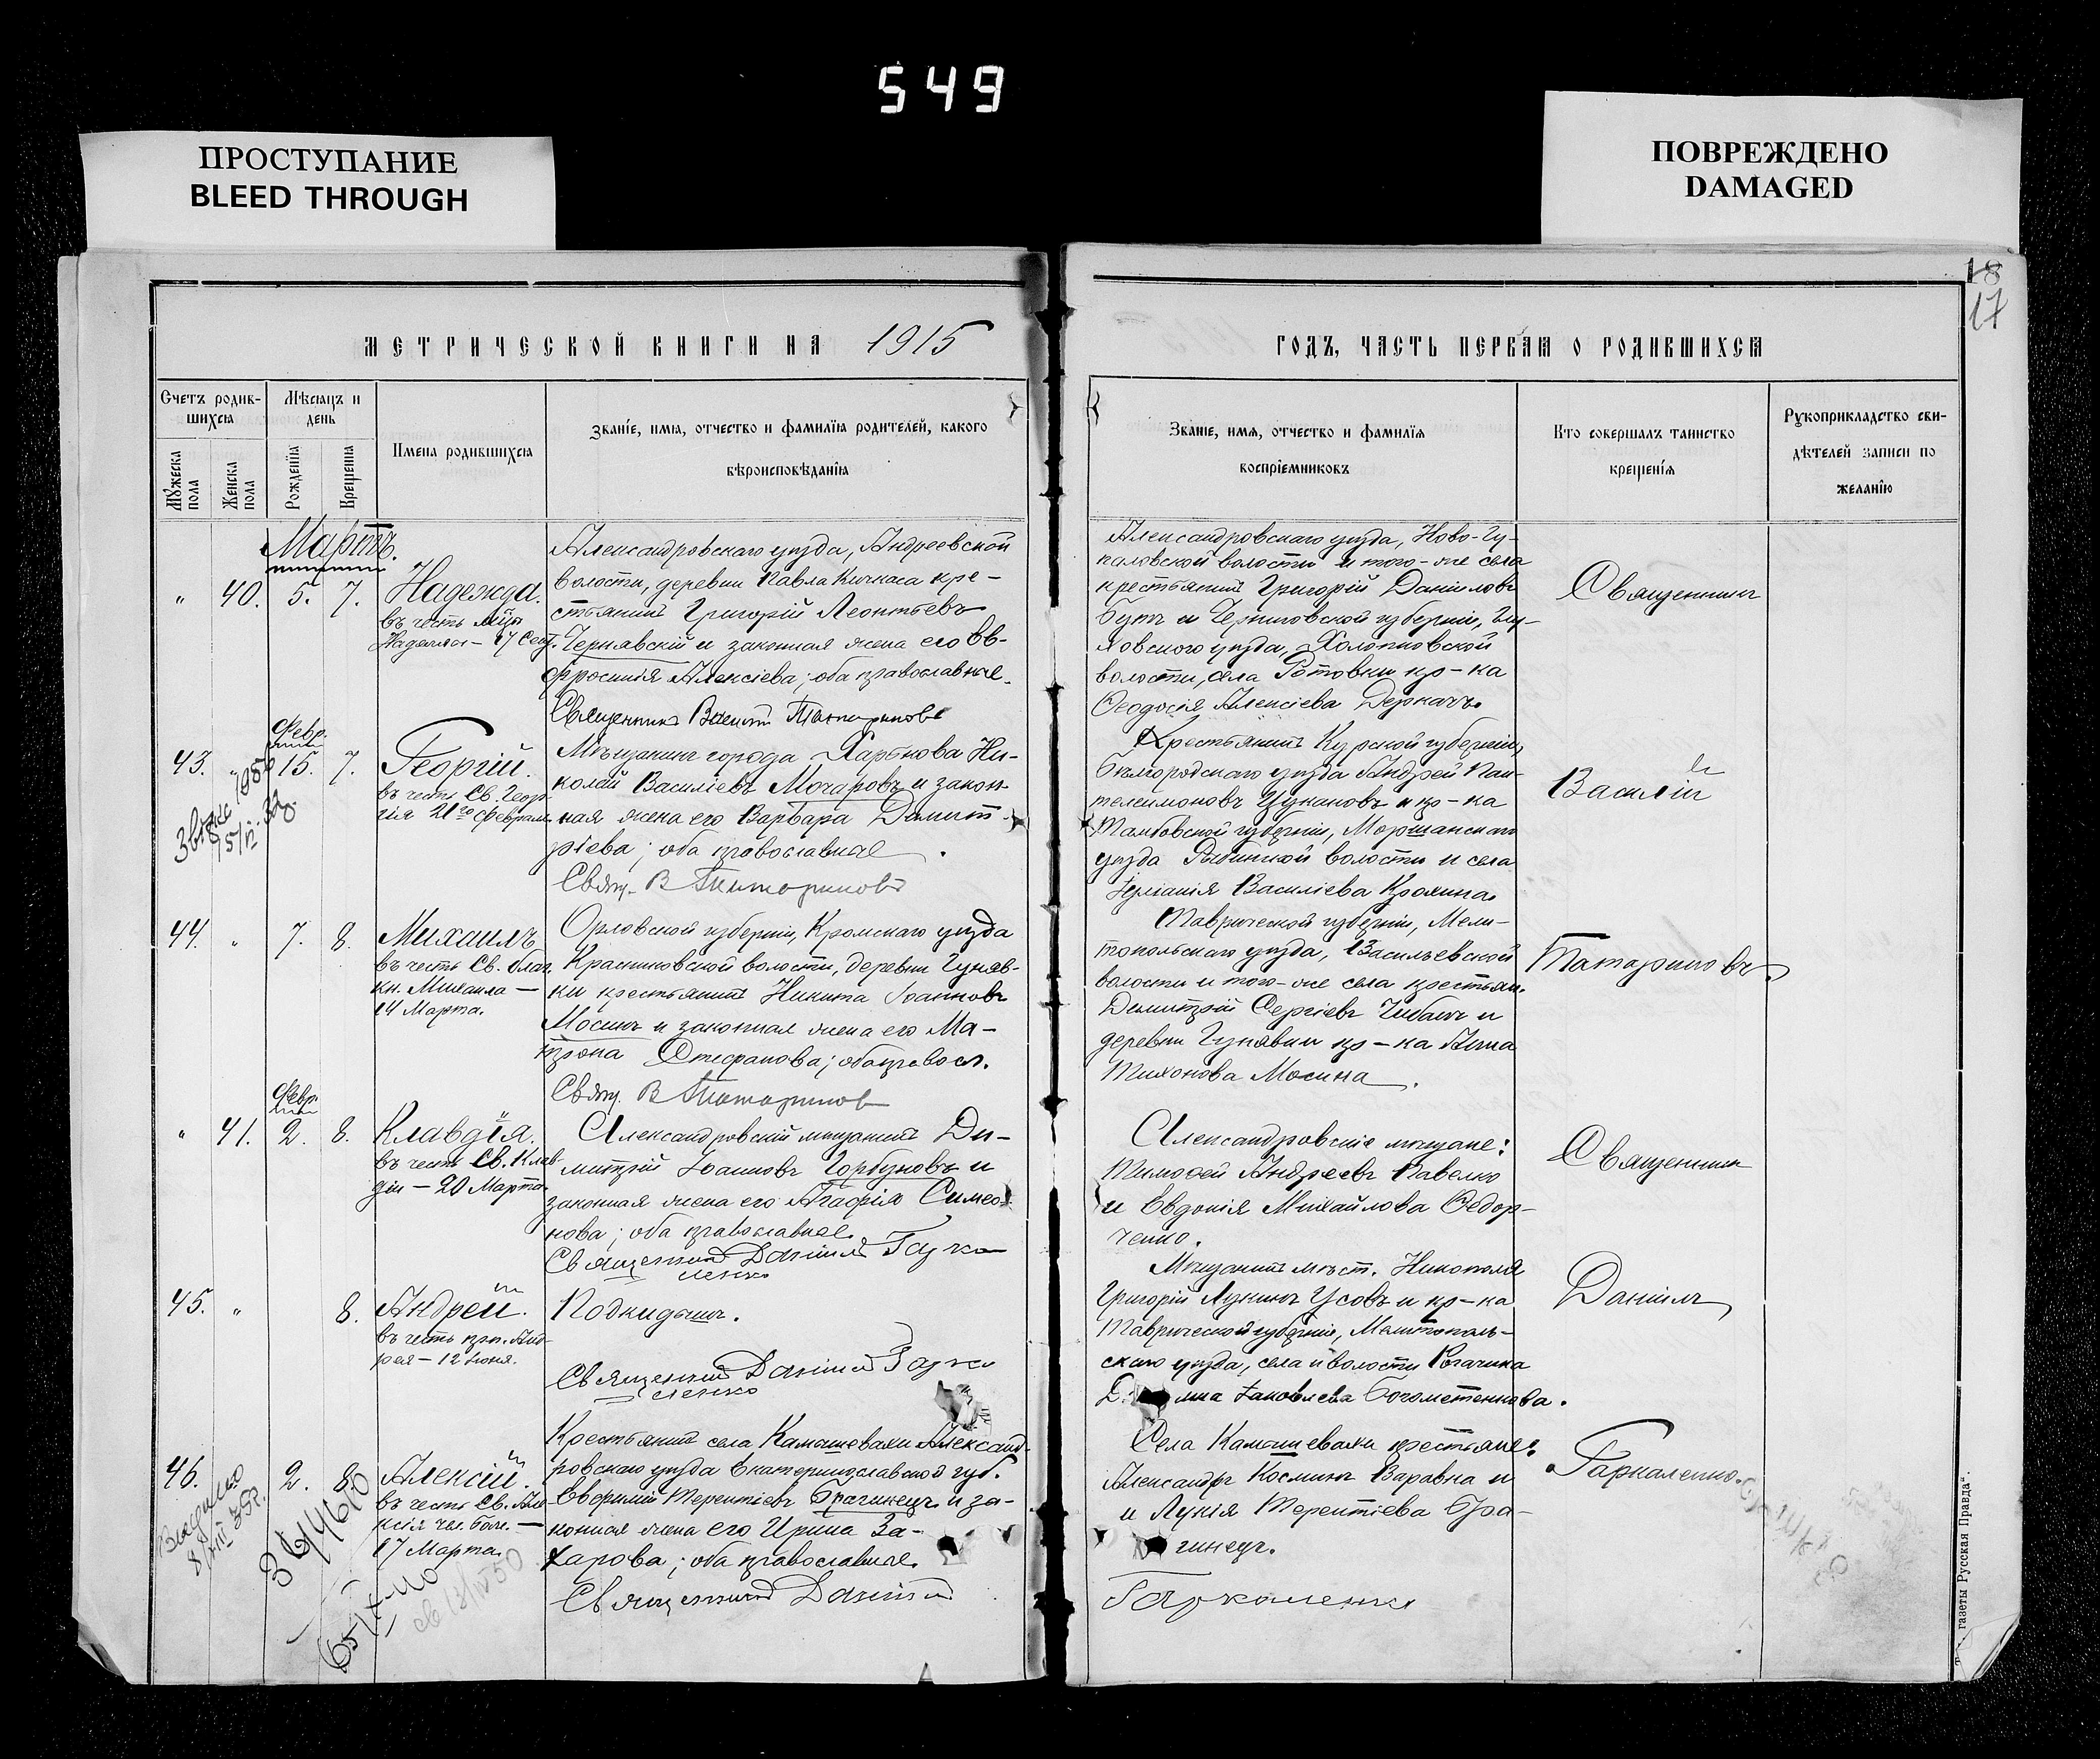 549
ПРОСТУПАНИЕ
BLEED THROUGH
ПОВРЕЖДЕНО
DAMAGED
18
17
МЕТРИЧЕСКОЙ КНИГИ НА 1915
ГОДЪ, ЧАСТЬ ПЕРВАЯ О РОДИВШИХСЯ
Счетъ родив-
шихся
Мужеска пола
Женска пола
Мѣсяцъ и
день
Рожденія
Крещенія
Имена родившихся
Званіе, имя, отчество и фамилія родителей, какого
вѣроисповѣданія
Званіе, имя, отчество и фамилія
воспріемниковъ
Кто совершалъ таинство
крещенія
Рукоприкладство сви-
дѣтелей записи по
желанію
Мартъ.
„ 40. 5. 7. Надежда.
въ честь муч.
Надежды - 17 Сент.
Александровскаго уѣзда, Андреевской
волости, деревни Павла Кичкаса кре-
стьянинъ Григорій Леонтьевъ
Чернявскій и законная жена его Ев-
фросинія Алексіева; оба православные.
Священникъ Василій Татариновъ
Александровскаго уѣзда, Ново-Гу-
паловской волости и того-же села
крестьянинъ Григорій Даніиловъ
Бутъ и Черниговской губерніи, Глу-
ховскаго уѣзда, Холопковской
волости, села Ротовки кр-ка
Ѳеодосія Алексіева Деркачъ.
Священникъ
Февр.
43. „ 15. 7. Георгій.
въ честь Св. Геор-
гія 21го февраля.
Мѣщанинъ города Харькова Ни-
колай Василіевъ Мочаровъ и закон-
ная жена его Варвара Димит-
ріева; оба православные.
Свящ. В Татариновъ
Крестьянинъ Курской губерніи,
Бѣлгородскаго уѣзда Андрей Пан-
телеимоновъ Цукановъ и кр-ка
Тамбовской губерніи, Моршанскаго
уѣзда Рыбинской волости и села
Василіева
Василій
44. „ 7. 8. Михаилъ
въ честь Св. благ.
кн. Михаила —
14 Марта.
Орловской губерніи, Кромскаго уѣзда
Красниковской волости, деревни Гуняв-
ки крестьянинъ Никита Іоанновъ
Мосинъ и законная жена его Ма-
трона Стефанова; оба правосл.
Свящ. В Татаринов
Таврической губерніи, Мели-
топольскаго уѣзда, Васильевской
волости и того-же села крестьян.
Димитрій Сергіевъ Чибашъ и
деревни Гунявки кр-ка Анна
Тихонова Мосина.
Татариновъ.
Февр.
„ 41. 2. 8. Клавдія.
въ честь Св. Клав-
діи - 20 Марта.
Александровскій мѣщанинъ Ди-
митрій Іоанновъ Горбуновъ и
законная жена его Агафія Симео-
нова; оба православные.
Священникъ Даніилъ Гарка
ленко
Александровскіе мѣщане:
Тимофей Андреевъ Павелко
и Евдокія Михайлова Ѳедор-
ченко.
Священникъ
45. „ 8. Андрей.
въ честь прп. Анд-
рея - 12 Іюня.
Подкидышъ.
Священникъ Даніилъ Гарка
ленко
Мѣщанинъ мѣст. Никополя
Григорій Лукинъ Усовъ и кр-ка
Таврической губерніи, Мелитополь-
скаго уѣзда, села и волости Рогачика
Іаковлева
Даніилъ
46. 2. 8. Алексій.
въ честь Св. Але-
ксія чел. Бож. —
17 Марта.
Крестьянинъ села Камышевахи Александ-
ровскаго уѣзда Екатеринославской губ.
Евфимій Терентіевъ Брагинецъ и за-
конная жена его Ирина За-
харова; оба православные.
Священникъ Даніилъ
Гаркаленко
Села Камышевахи крестьяне:
Александръ Косминъ Варавва и
и Лукія Терентіева Бра-
гинецъ.
Гаркаленко.
36/4610
газеты Русская Правда".